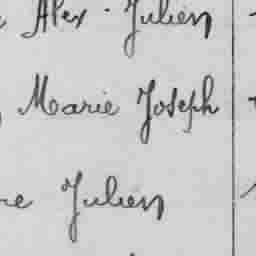 Alex. Julien
Marie Joseph
Julien